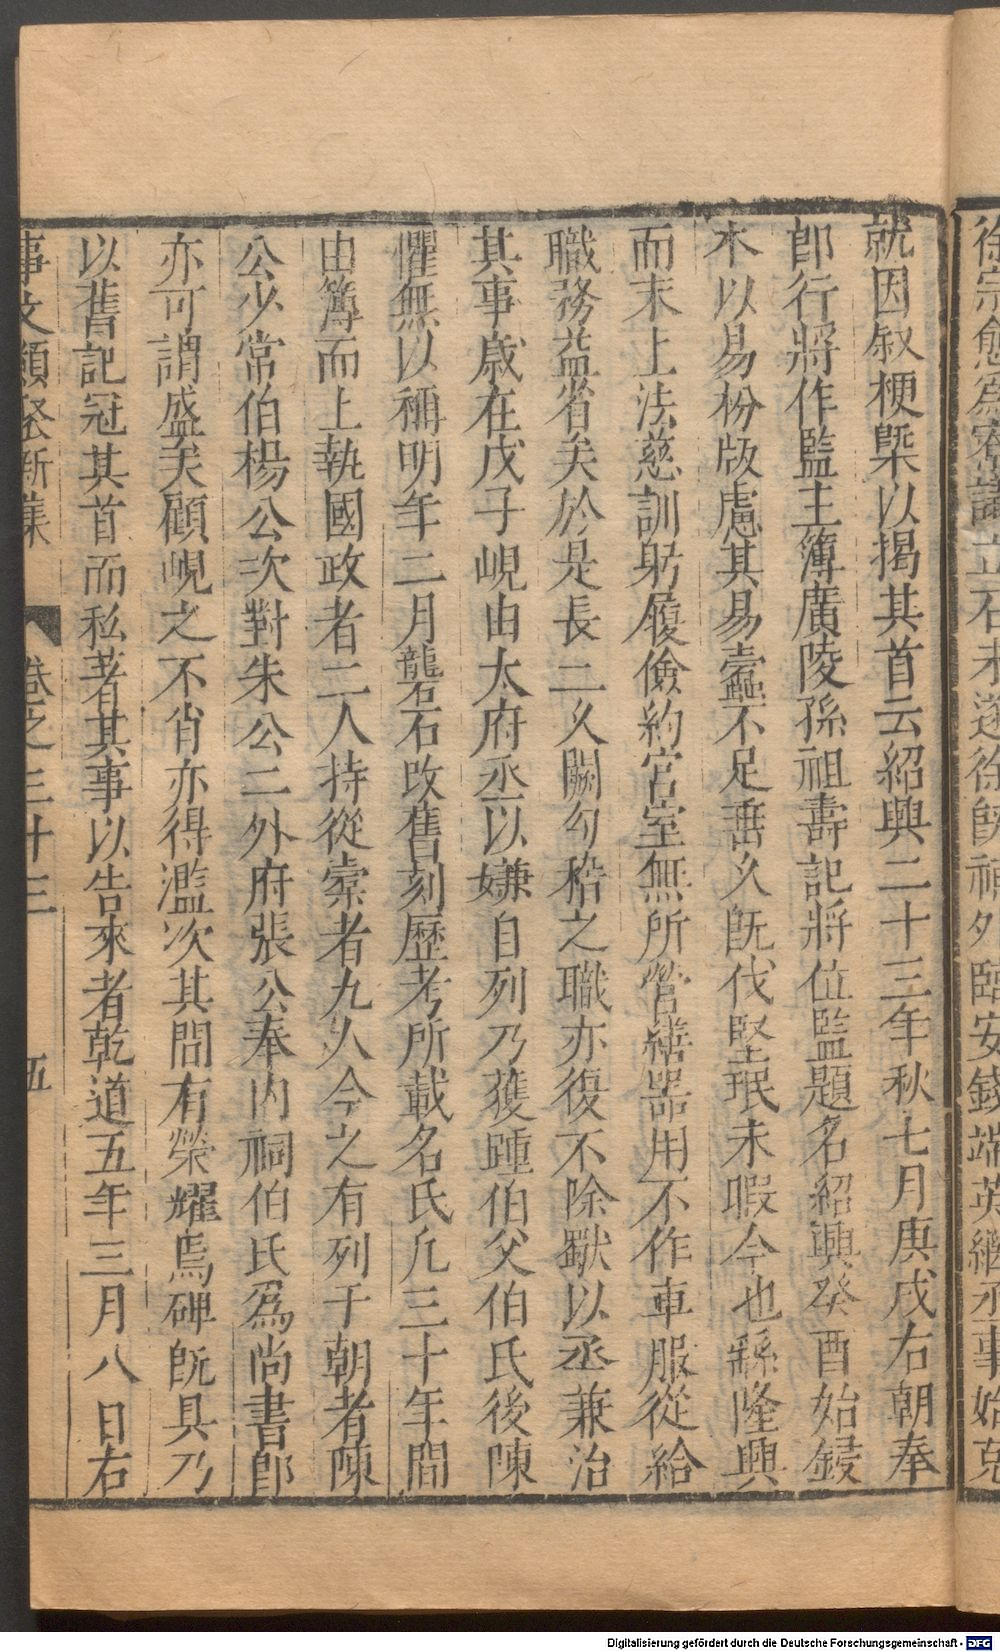 徐宗愈爲察議立石未遂徐旣補外臨安錢端英繼丞事始克
就因叙梗槩以揭其首云紹興二十三年秋七月庚戌右朝奉
郎行將作監主簿廣陵孫祖壽記將位監題名紹興癸酉始鋟
木以易枌版慮其易蠹不足垂久旣伐堅珉未暇今也繇隆興
而末上法慈訓躬履儉約宮室無所營繕器用不作車服從給
職務益省矣於是長二久闕勾稽之職亦復不除獄以丞兼治
其事歲在戊子峴由太府丞以嫌自列乃獲踵伯父伯氏後陳
懼無以稱明年二月礱石改舊刻歷考所載名氏凢三十年間
由簿而上執國政者二人持從橐者九人今之有列于朝者陳
公少常伯楊公次對朱公二外府張公奉内祠伯氏爲尚書郎
亦可謂盛矣顧峴之不肖亦得濫次其間有榮耀焉碑旣具乃
以舊記冠其首而私著其事以告來者乾道五年三月八日右
事文類聚新集 卷之三十三 五
Digitalisierung gefördert durch die Deutsche Forschungsgemeinschaft - DFG